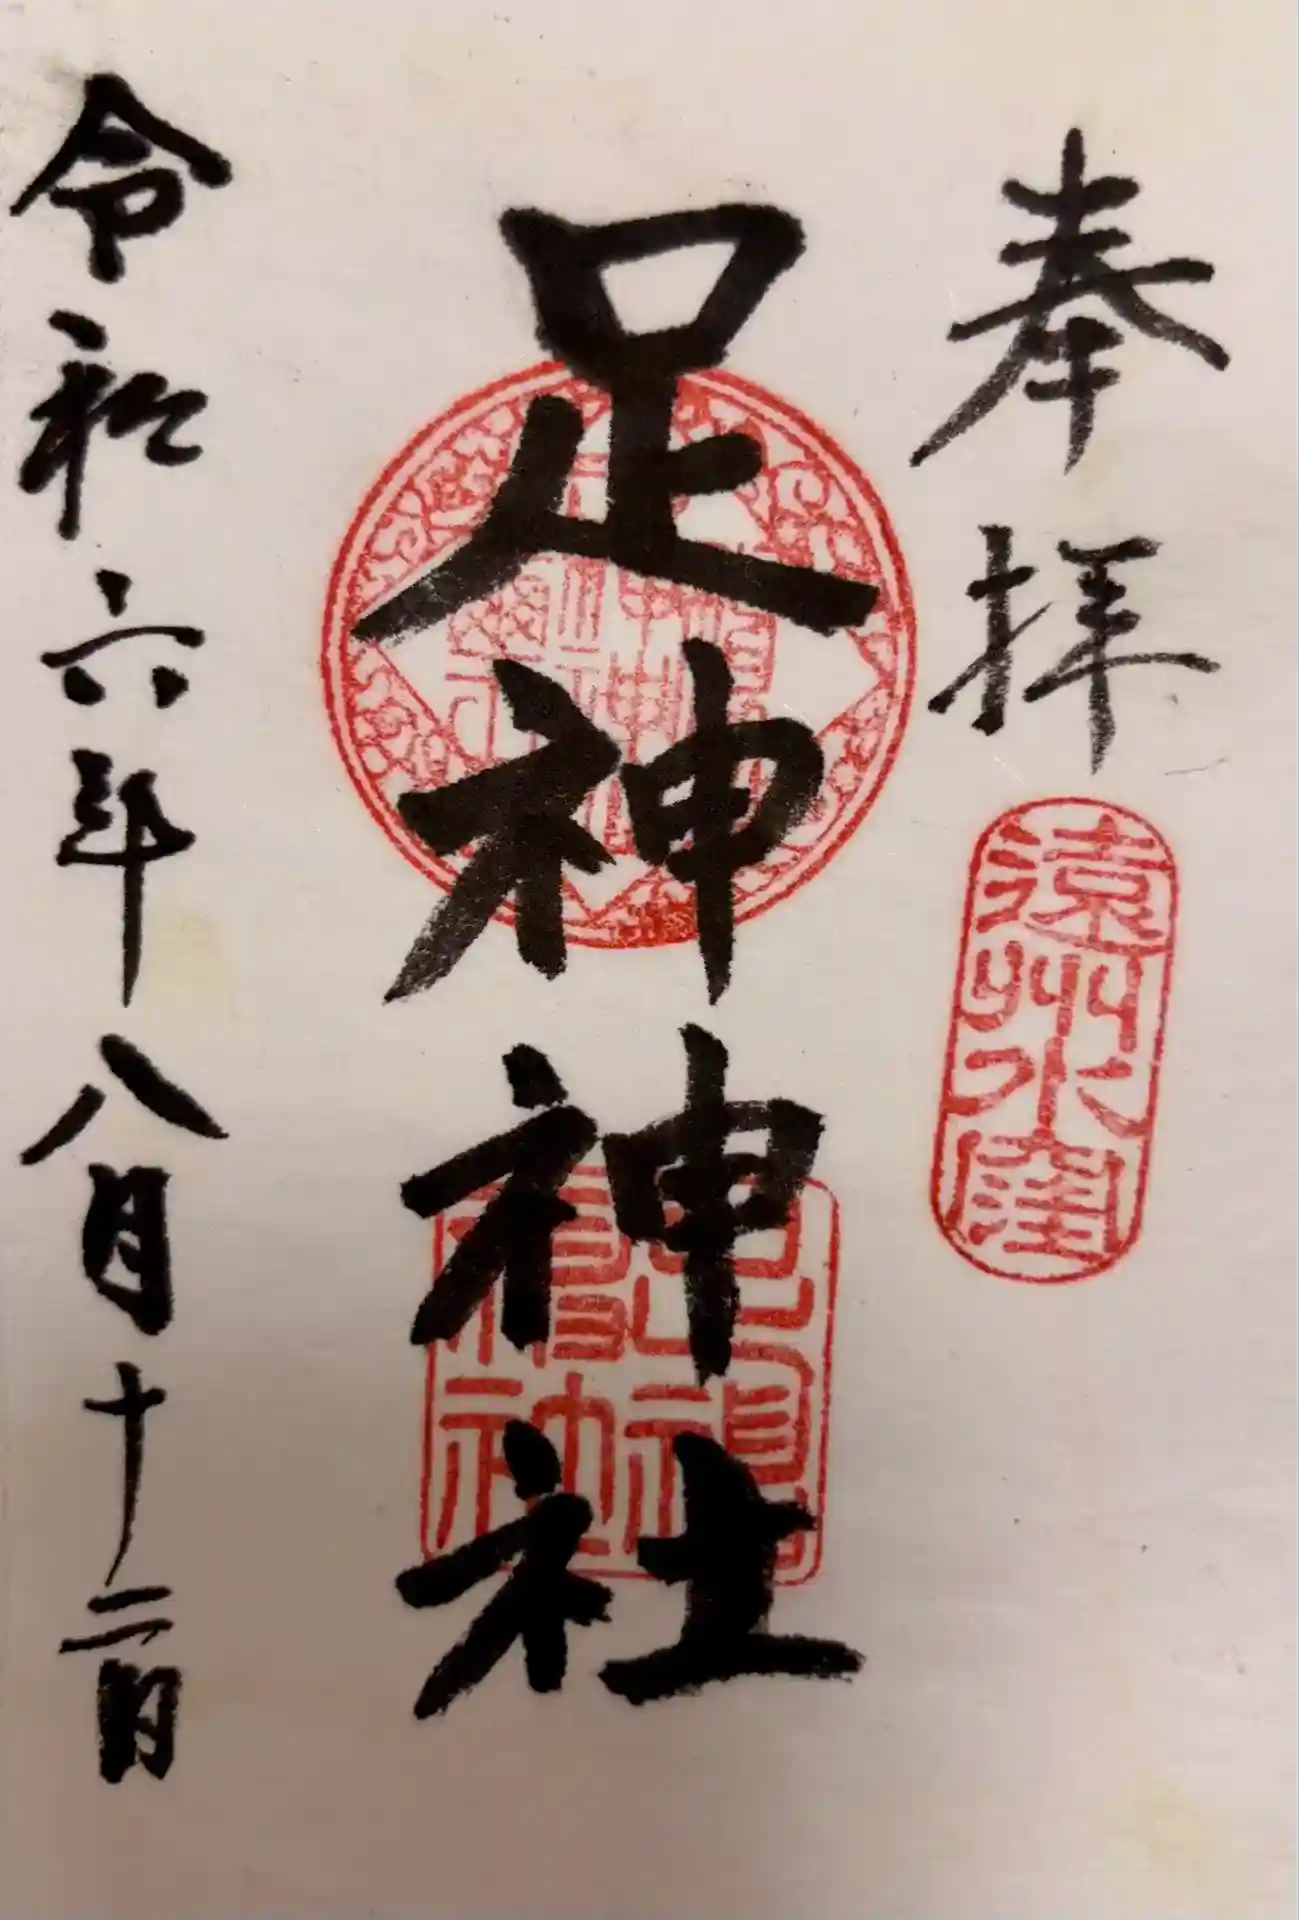 奉拝
遠州水窪
足神神社
令和六年八月十二日